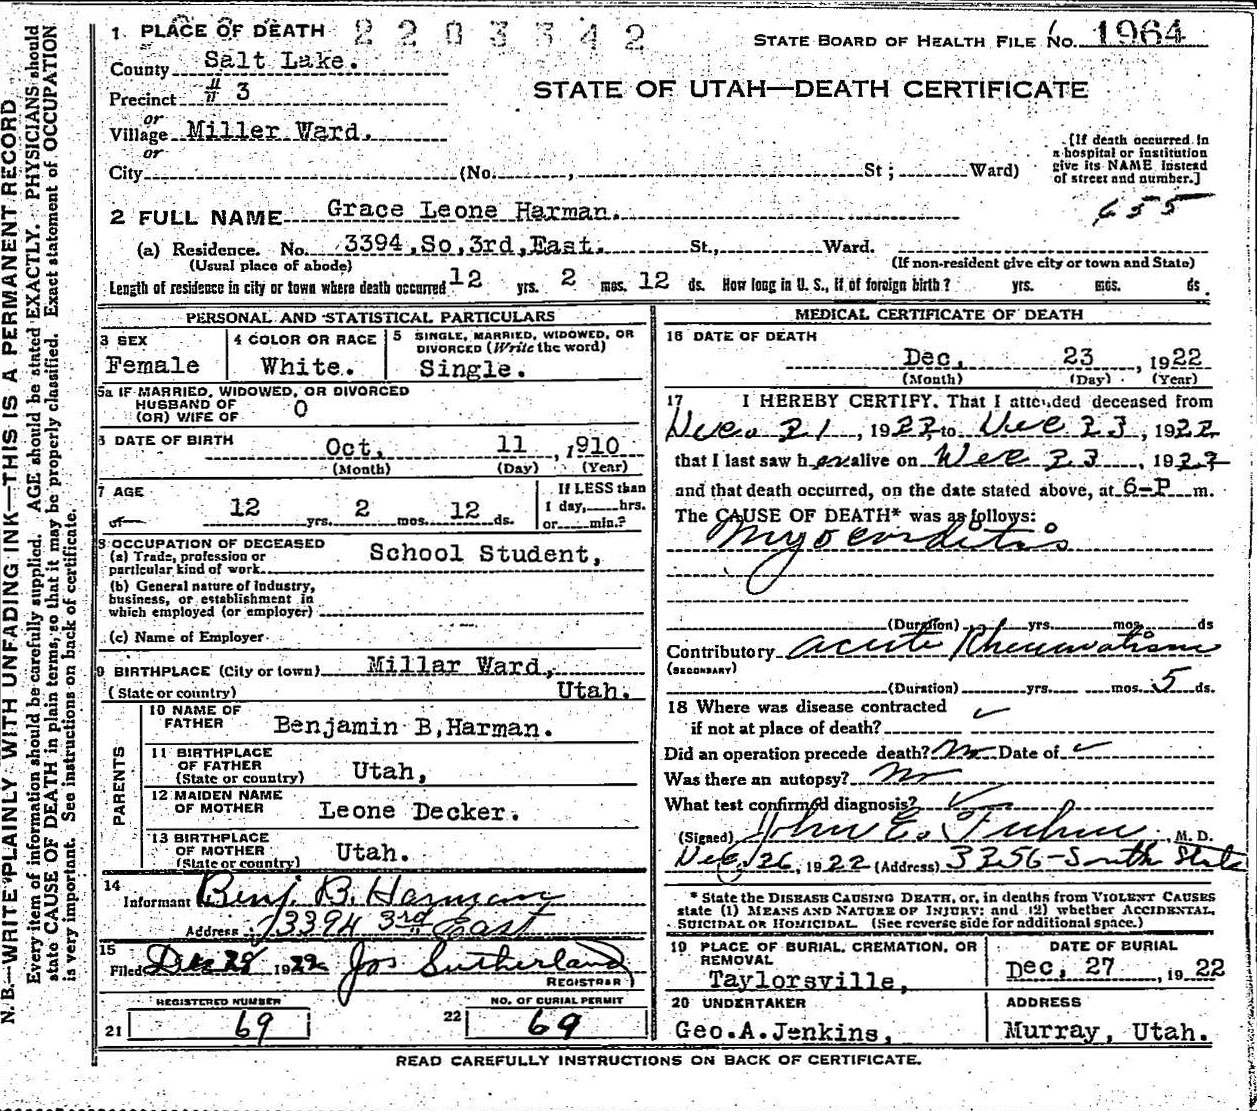 1 PLACE OF DEATH 2203342
STATE BOARD OF HEALTH FILE No. 1964
County Salt Lake.
STATE OF UTAH—DEATH CERTIFICATE
Precinct # 3
or
Village Miller Ward.
or
City (No. , St ; Ward)
[If death occurred in
a hospital or institution
give its NAME instead
of street and number.]
655
2 FULL NAME Grace Leone Harman.
(a) Residence. No. 3394,So,3rd,East. St., Ward.
(Usual place of abode) (If non-resident give city or town and State)
Length of residence in city or town where death occurred 12 yrs. 2 mos. 12 ds. How long in U. S., if of foreign birth? yrs. mos. ds.
PERSONAL AND STATISTICAL PARTICULARS
3 SEX
Female
4 COLOR OR RACE
White.
5 SINGLE, MARRIED, WIDOWED, OR
DIVORCED (Write the word)
Single.
5a IF MARRIED, WIDOWED, OR DIVORCED
HUSBAND OF
(OR) WIFE OF O
6 DATE OF BIRTH
Oct. 11 , 1910
(Month) (Day) (Year)
7 AGE
or 12 yrs. 2 mos. 12 ds.
If LESS than
1 day, hrs.
or min.?
8 OCCUPATION OF DECEASED
(a) Trade, profession or
particular kind of work School Student,
(b) General nature of industry,
business, or establishment in
which employed (or employer)
(c) Name of Employer
9 BIRTHPLACE (City or town) Millar Ward,
(State or country) Utah.
PARENTS
10 NAME OF
FATHER Benjamin B,Harman.
11 BIRTHPLACE
OF FATHER
(State or country) Utah,
12 MAIDEN NAME
OF MOTHER Leone Decker.
13 BIRTHPLACE
OF MOTHER
(State or country) Utah.
14
Informant Benj. B. Harman
Address 3394 3rd East
15
Filed Dec 28 1922 Jos Sutherland
REGISTRAR
REGISTERED NUMBER
21 69
NO. OF BURIAL PERMIT
22 69
MEDICAL CERTIFICATE OF DEATH
16 DATE OF DEATH
Dec. 23 , 1922
(Month) (Day) (Year)
17 I HEREBY CERTIFY, That I attended deceased from
Dec. 21 , 1922 to Dec 23 , 1922
that I last saw her alive on Dec 23 , 1922
and that death occurred, on the date stated above, at 6-P m.
The CAUSE OF DEATH* was as follows:
Myocarditis
(Duration) yrs. mos. ds
Contributory acute Rheumatism
(SECONDARY)
(Duration) yrs. mos. 5 ds.
18 Where was disease contracted
if not at place of death?
Did an operation precede death? No Date of
Was there an autopsy? No
What test confirmed diagnosis?
(Signed) John E. M. D.
Dec. 26, 1922 (Address) 3356-South State
* State the DISEASE CAUSING DEATH, or, in deaths from VIOLENT CAUSES
state (1) MEANS AND NATURE OF INJURY; and (2) whether ACCIDENTAL,
SUICIDAL OR HOMICIDAL. (See reverse side for additional space.)
19 PLACE OF BURIAL, CREMATION, OR
REMOVAL
Taylorsville,
DATE OF BURIAL
Dec, 27 , 1922
20 UNDERTAKER
Geo.A.Jenkins,
ADDRESS
Murray, Utah.
READ CAREFULLY INSTRUCTIONS ON BACK OF CERTIFICATE.
N. B.—WRITE PLAINLY WITH UNFADING INK—THIS IS A PERMANENT RECORD
Every item of information should be carefully supplied. AGE should be stated EXACTLY. PHYSICIANS should
state CAUSE OF DEATH in plain terms, so that it may be properly classified. Exact statement of OCCUPATION
is very important. See instructions on back of certificate.